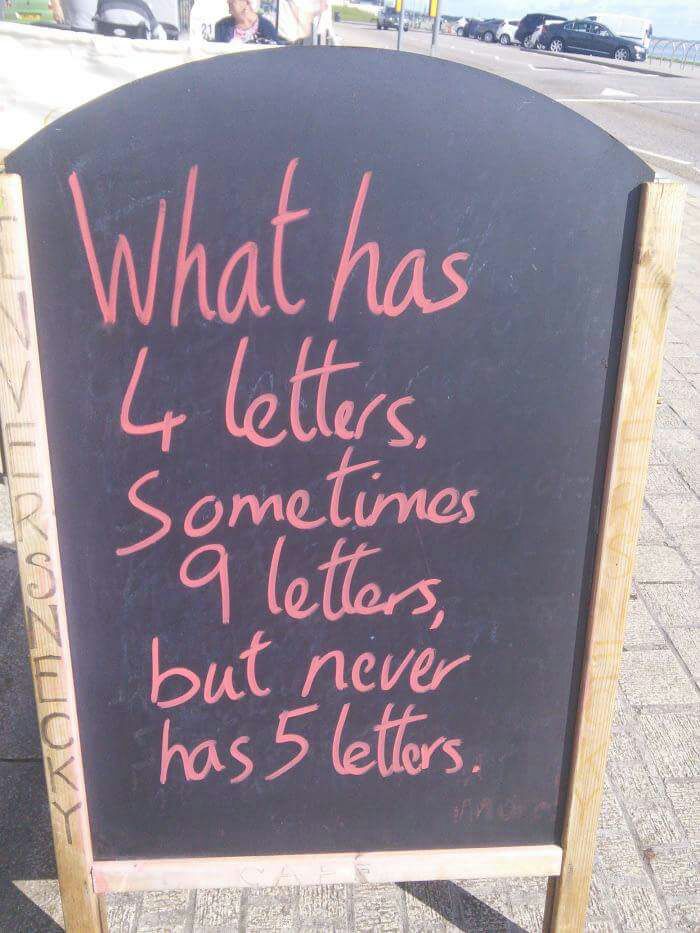 What has
4 letters,
Sometimes
9 letters,
but never
has 5 letters.
CAFE